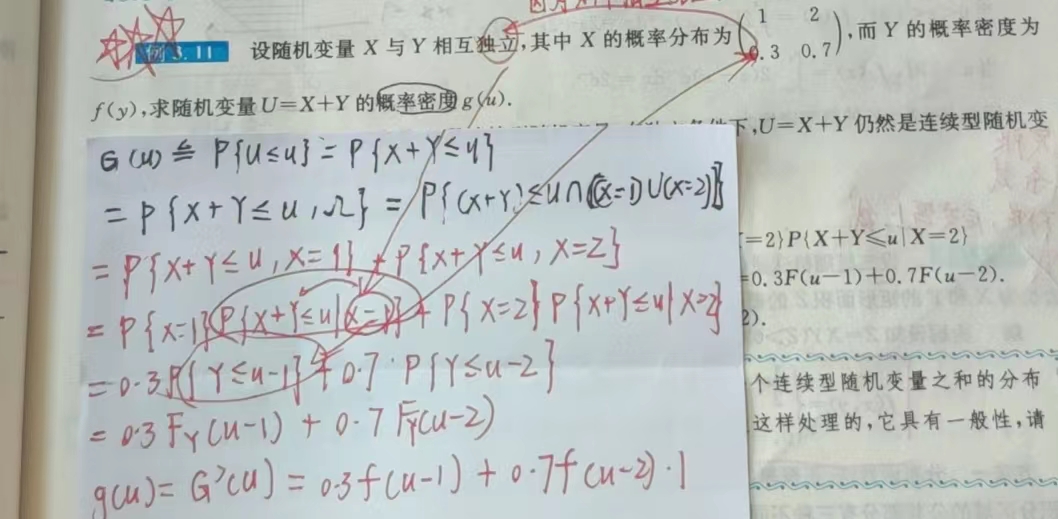 例3.11 设随机变量 X 与 Y 相互独立,其中 X 的概率分布为 ( 1 2 0.3 0.7 ),而 Y 的概率密度为
f(y),求随机变量 U=X+Y 的概率密度 g(u).
下,U=X+Y 仍然是连续型随机变
G(u) ≜ P{U≤u} = P{X+Y≤u}
= P{X+Y≤u,Ω} = P{(X+Y)≤u∩[(X=1)∪(X=2)]}
=2}P{X+Y≤u|X=2}
= P{X+Y≤u,X=1} + P{X+Y≤u,X=2}
=0.3F(u-1)+0.7F(u-2).
= P{X=1}P{X+Y≤u|X=1} + P{X=2}P{X+Y≤u|X=2}
2).
= 0.3P{Y≤u-1} + 0.7·P{Y≤u-2}
个连续型随机变量之和的分布
= 0.3F_Y(u-1) + 0.7F_Y(u-2)
这样处理的,它具有一般性,请
g(u) = G'(u) = 0.3f(u-1) + 0.7f(u-2)·1